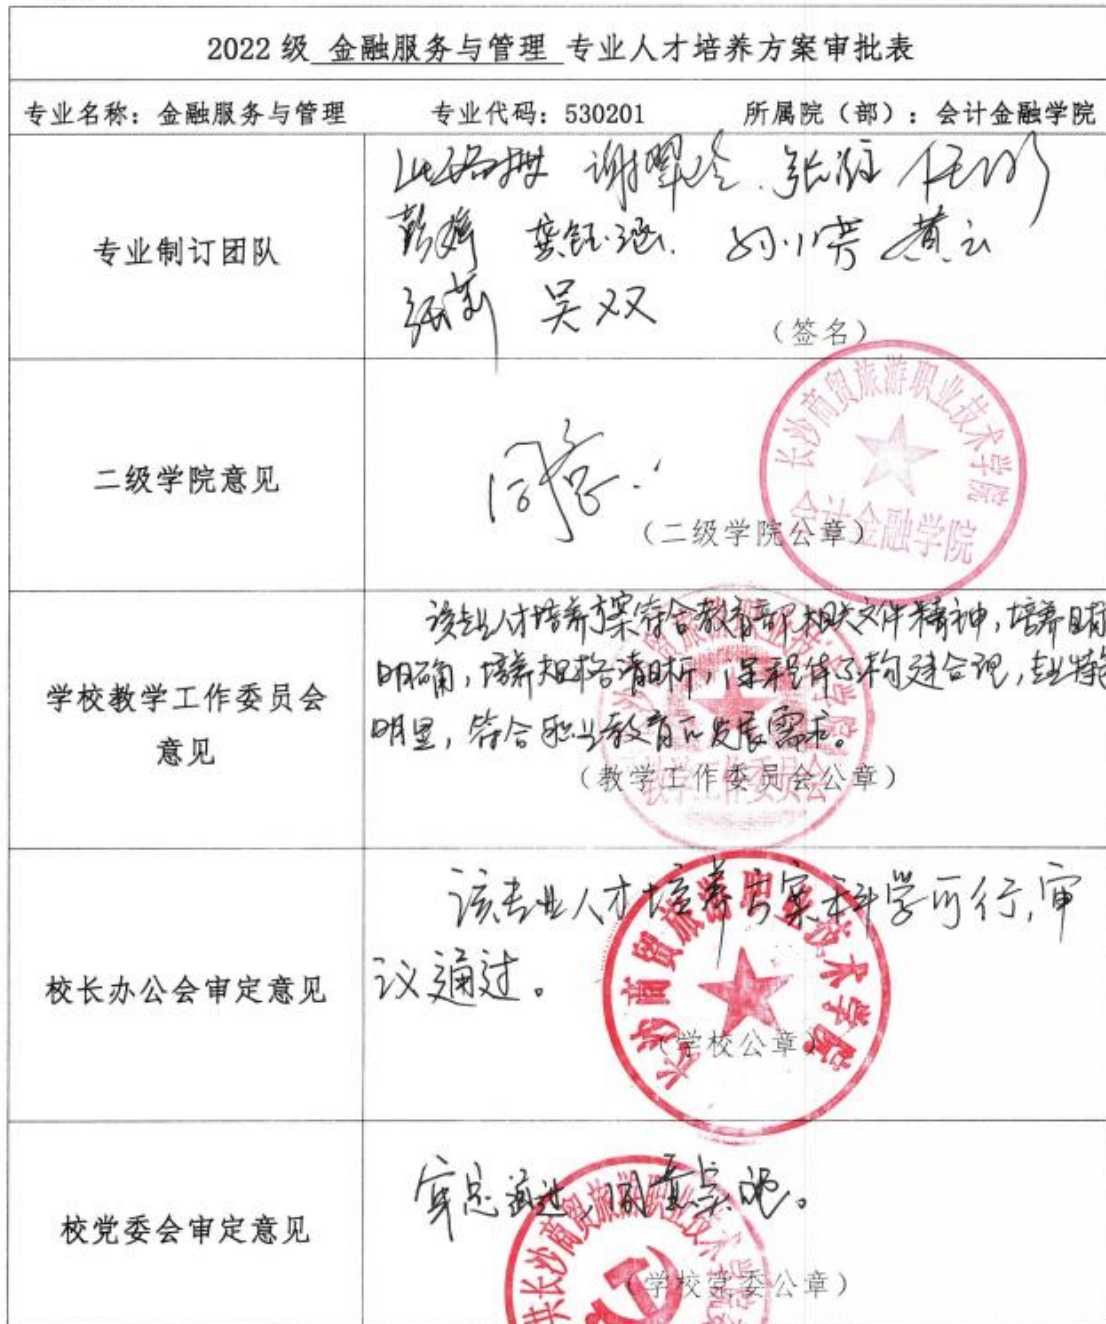 2022 级 金融服务与管理 专业人才培养方案审批表
专业名称：金融服务与管理 专业代码：530201 所属院（部）：会计金融学院
专业制订团队
谢翠玲 张
彭婷 龚钰涵 孙小芳 黄云
张莉 吴双
（签名）
二级学院意见
同意.
（二级学院公章）
长沙商贸旅游职业技术学院
会计金融学院
学校教学工作委员会
意见
该专业人才培养方案符合教育部相关文件精神，培养目标
明确，培养规格清晰，课程体系构建合理，专业特色
明显，符合职业教育的发展需求。
（教学工作委员会公章）
教学工作委员会
校长办公会审定意见
该专业人才培养方案科学可行，审
议通过。
（学校公章）
长沙商贸旅游职业技术学院
校党委会审定意见
审定通过，同意实施。
（学校党委公章）
共长沙商贸旅游职业技术学院